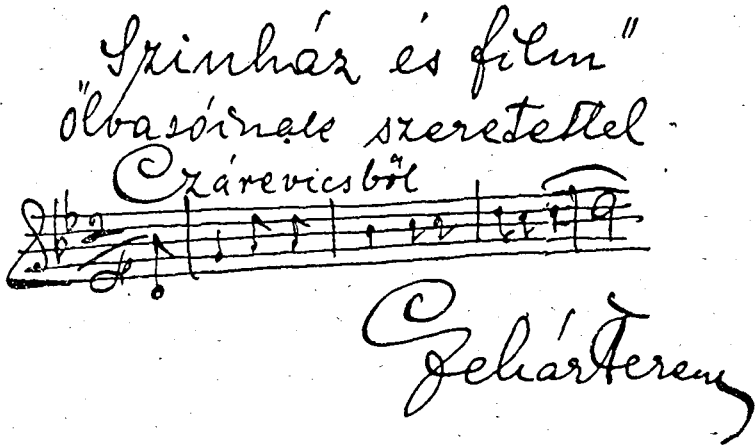 Szinház és film"
olvasóinak szeretettel.
Czárevicsből
Lehár Ferenc